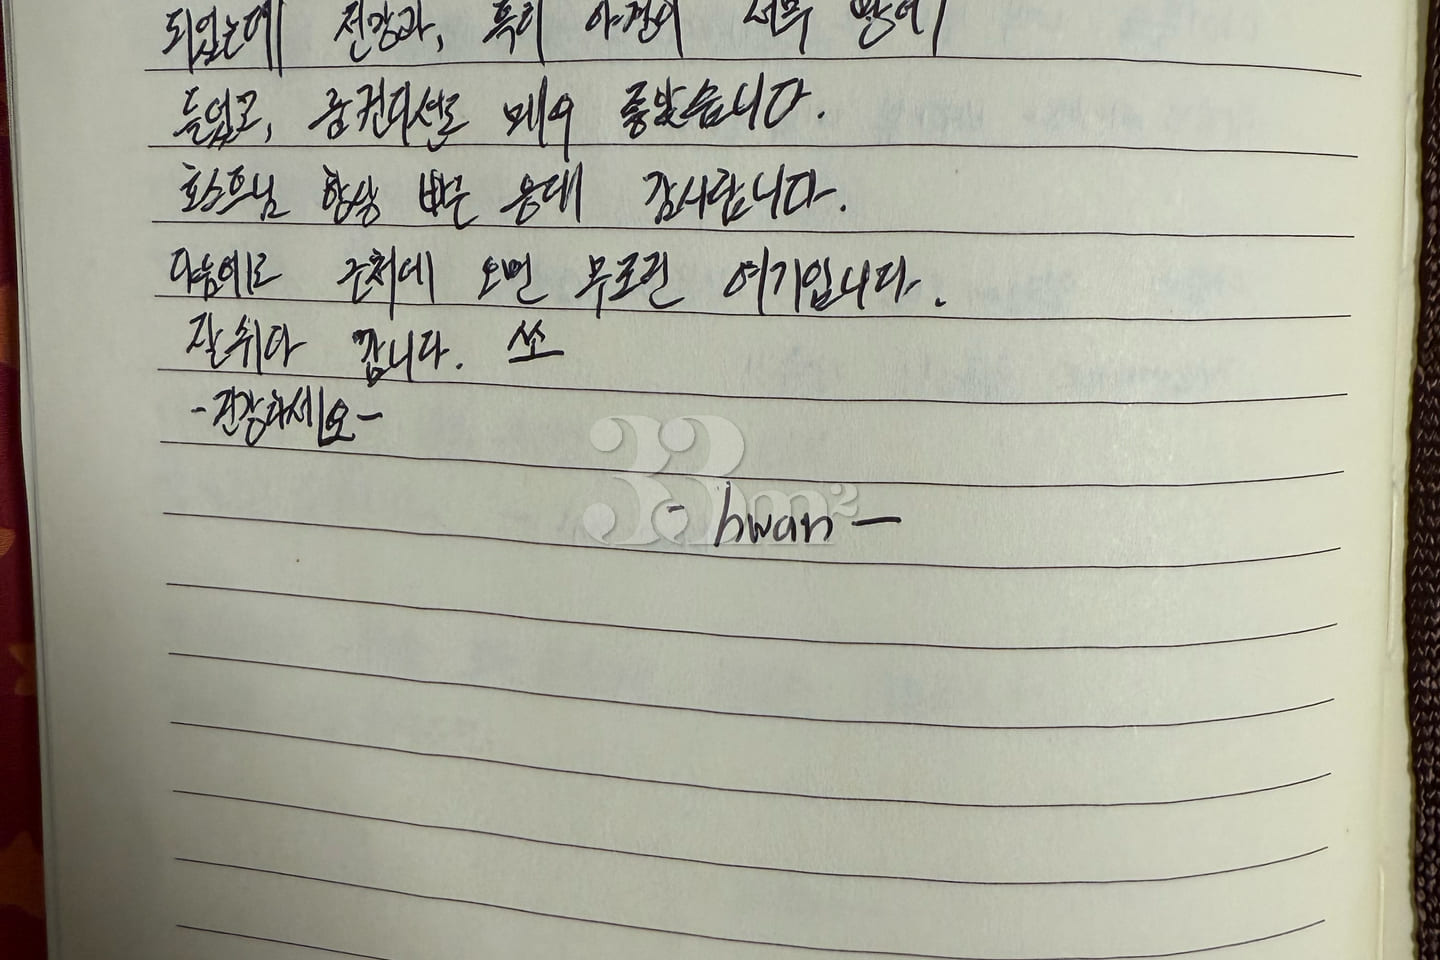 되었는데 전망과, 특히 야경이 너무 맘에
들었고, 룸컨디션도 매우 좋았습니다.
호스트님 항상 빠른 응대 감사합니다.
다음에도 근처에 오면 무조건 여기입니다.
잘 쉬다 갑니다.
-건강하세요-
33m²
- hwan -